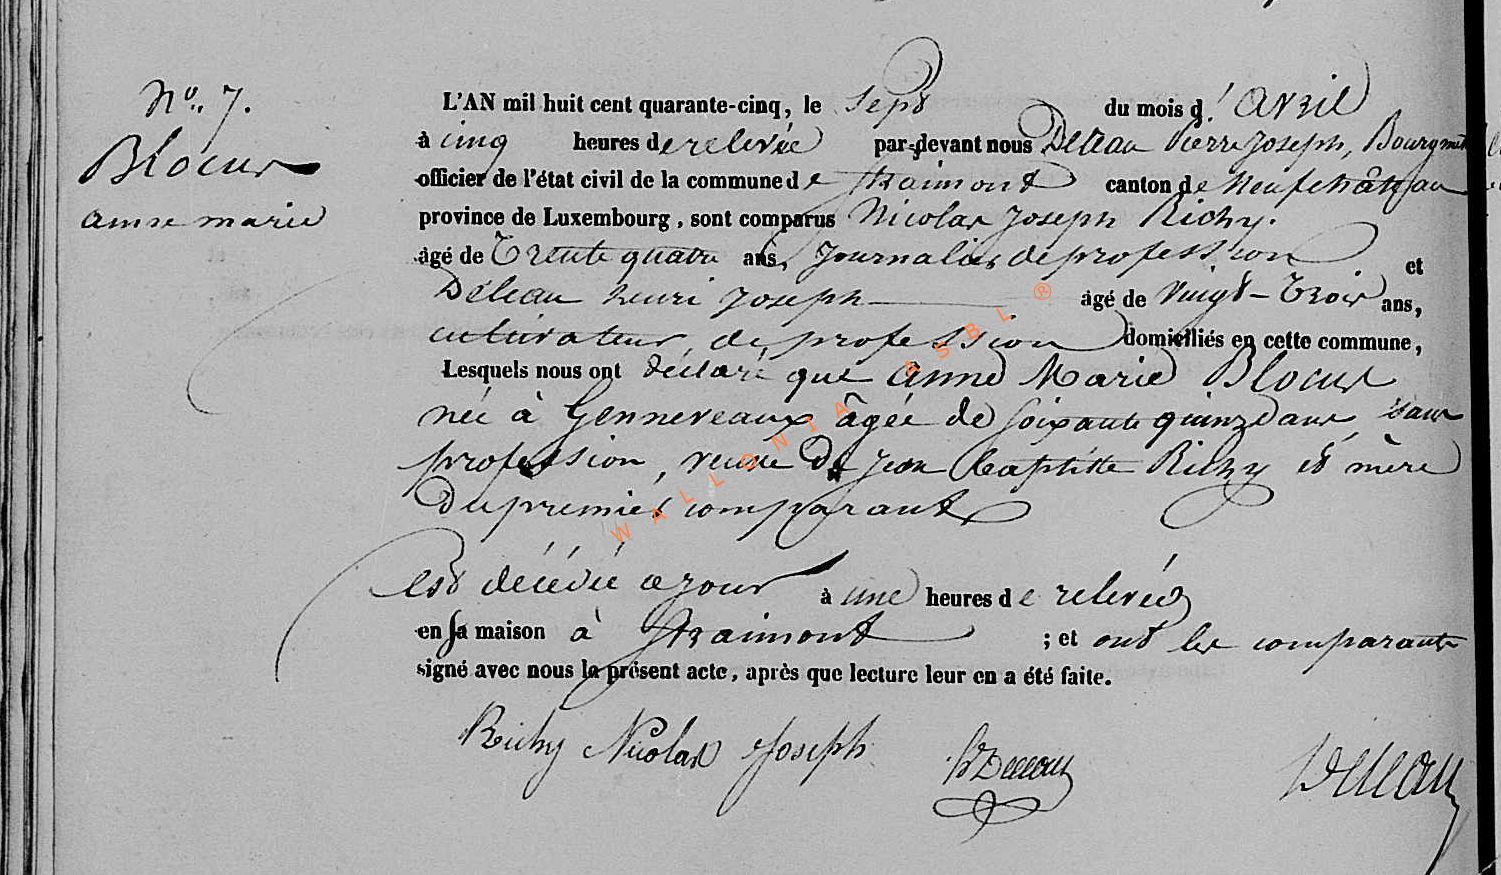 No. 7.
Blocus
anne marie
L'AN mil huit cent quarante-cinq, le Sept du mois d'Avril
à cinq heures de relevée par-devant nous Déleau Pierre Joseph, Bourgm
officier de l'état civil de la commune de Straimont canton de Neufchâteau
province de Luxembourg, sont comparus Nicolas Joseph Richy.
âgé de Trente quatre ans, Journalier de profession et
Déleau henri Joseph âgé de vingt-Trois ans,
cultivateur de profession domiciliés en cette commune,
Lesquels nous ont déclaré que Anne Marie Blocus
née à Genneveaux âgée de soixante quinze ans, sans
profession, veuve de jean baptiste Richy et mère
du premier comparant
est décédée ce jour à une heures de relevée
en sa maison à Straimont ; et ont les comparants
signé avec nous le présent acte, après que lecture leur en a été faite.
Richy Nicolas Joseph Déleau Déleau
WALLONIA ASBL ®